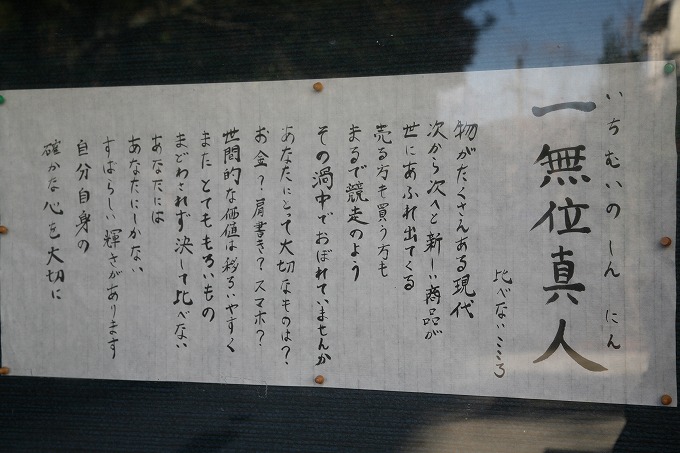 いちむいのしんにん
一無位真人
比べないこころ
物がたくさんある現代
次から次へと新しい商品が
世にあふれ出てくる
売る方も買う方も
まるで競走のよう
その渦中でおぼれていませんか
あなたにとって大切なものは?
お金?肩書き?スマホ?
世間的な価値は移ろいやすく
またとてももろいもの
まどわされず決して比べない
あなたには
あなたにしかない
すばらしい輝きがあります
自分自身の
確かな心を大切に